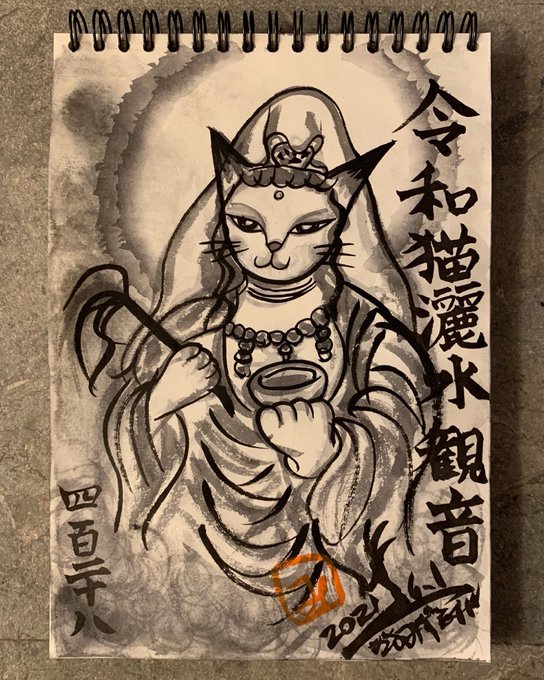 令和猫灑水観音
四百二十八
2021